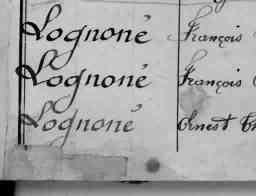 Lognoné François
Lognoné François
Lognoné Ernest